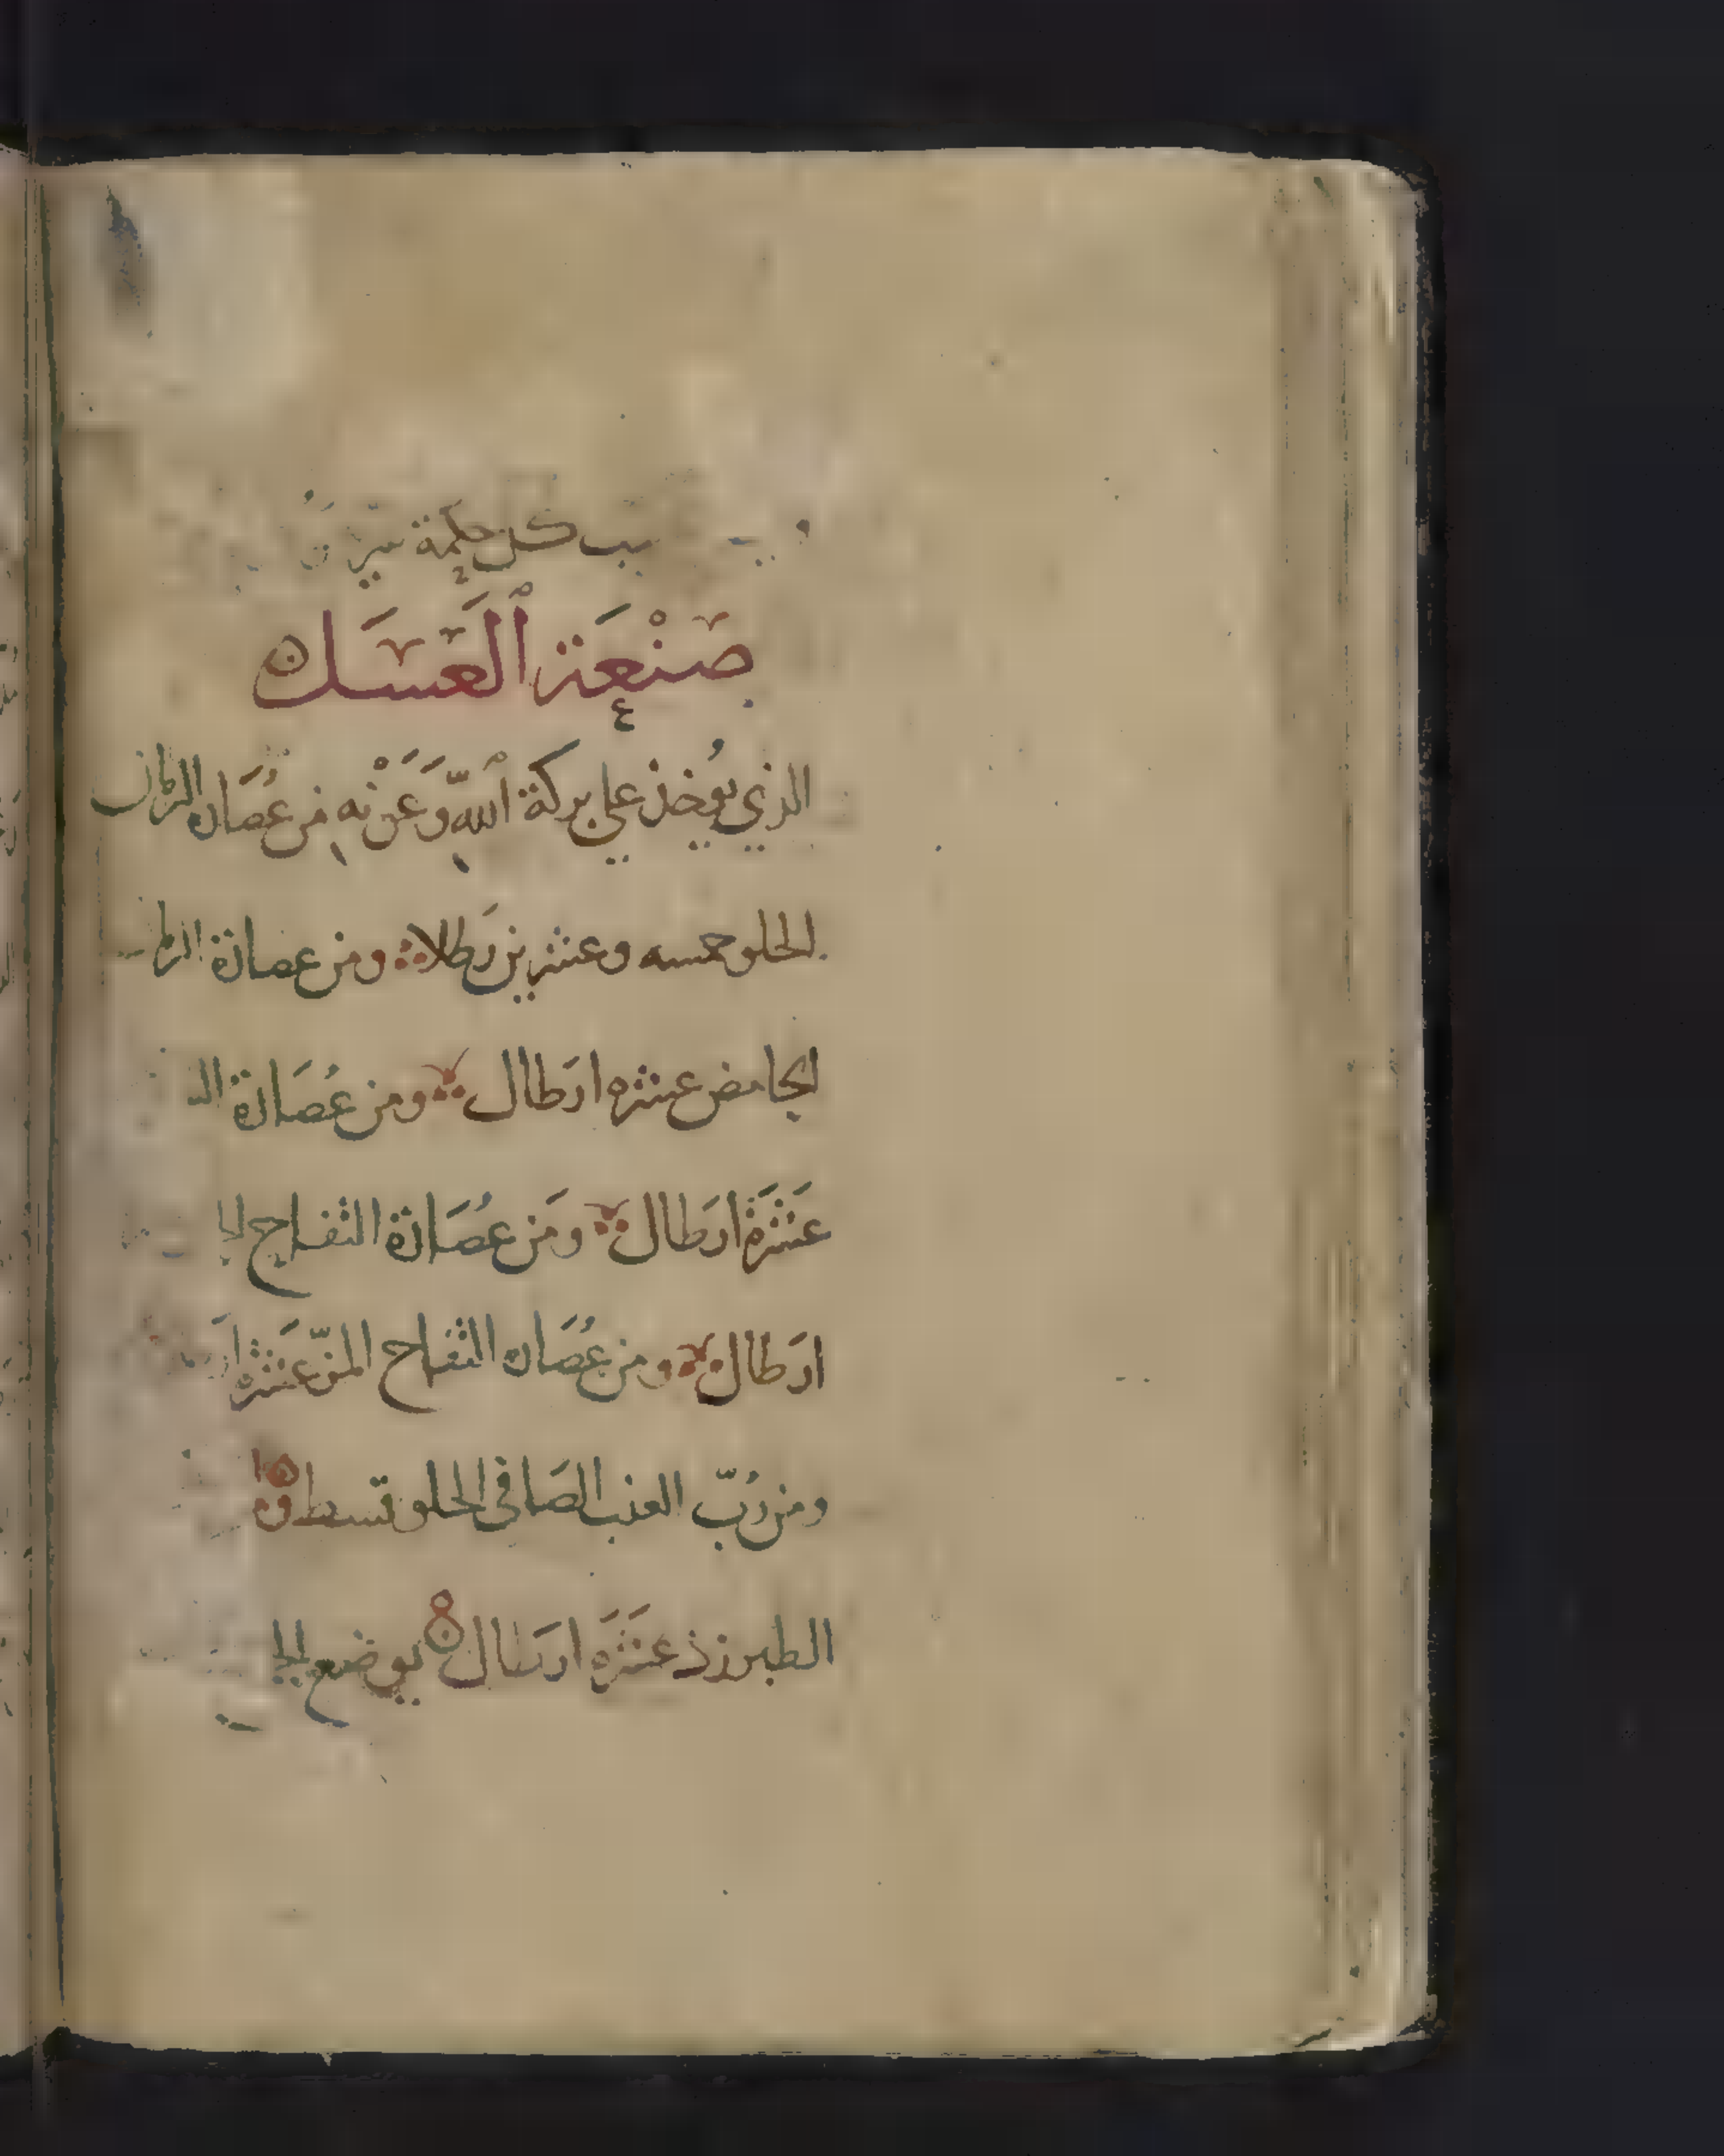 كل حكمة
صَنْعَة ٱلْعَسَل
الذي يُوخذ علي بركة ٱللهِ وَعَوْنِهِ من عُصَاره الرمان
الحلو خمسه وعشرين رَطلا ومن عصارة الرمان
الحامض عشره ارَطال ومن عُصَارة
عَشَرَة ارَطال ومَن عُصَارة التفاح
ارَطال ومن عُصَاره التفاح المزّ عَشَره
ومن رُبّ العنب الصَافي الحلو قسط
الطبرزذ عَشَرَه ارَطال يوضع